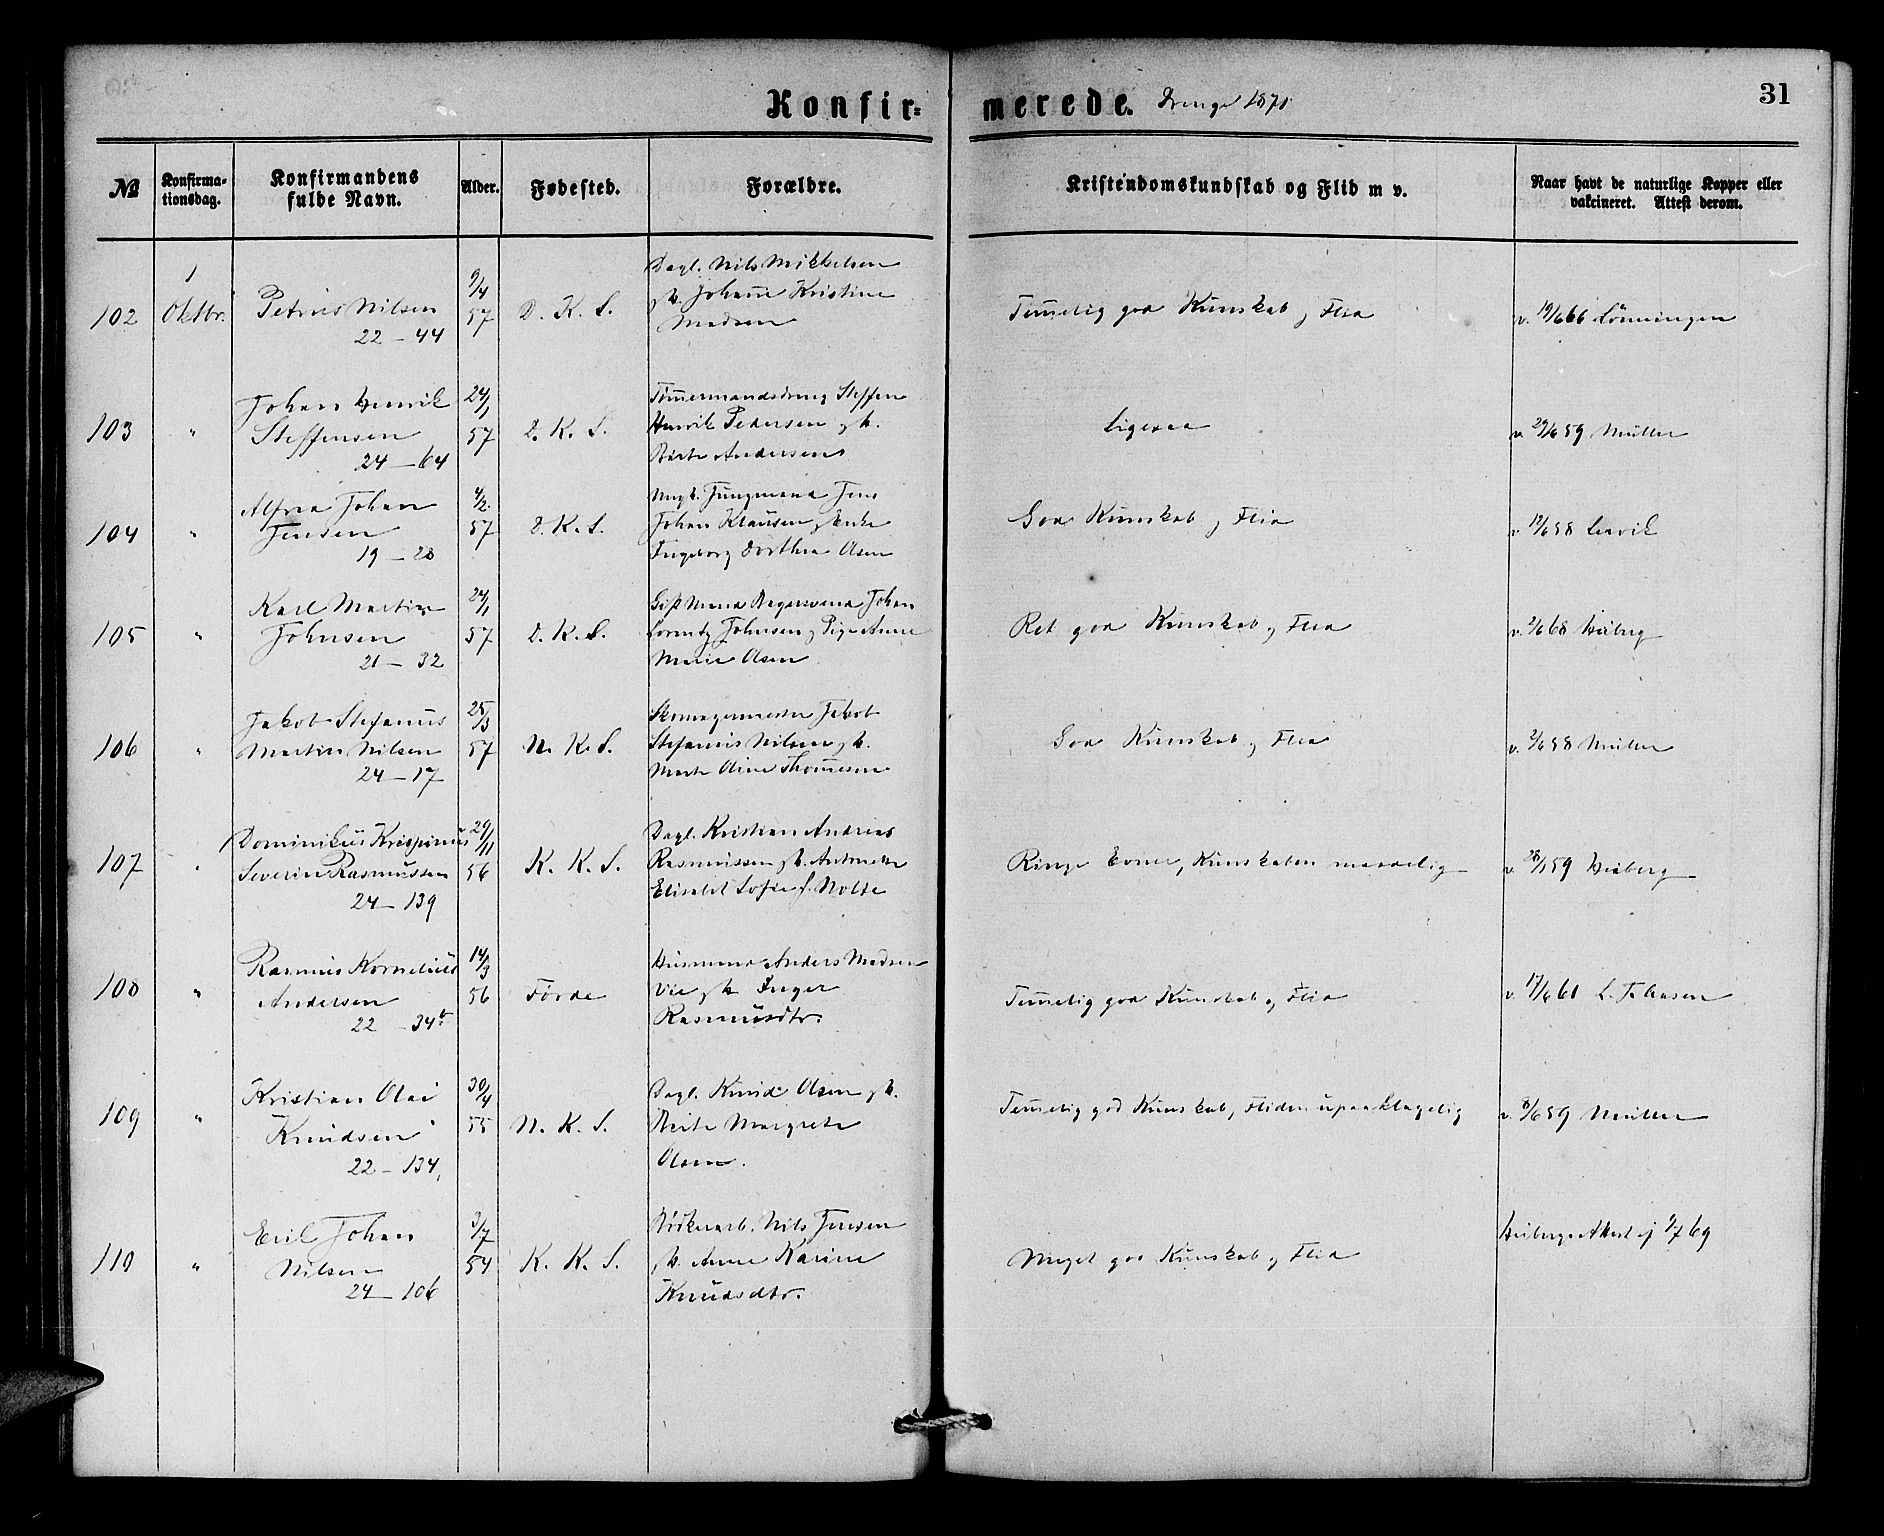 Konfir=
merede. Drenge 1871
31
№
Konfirma-
tionsdag.
Konfirmandens
fulde Navn.
Alder.
Fødested.
Forældre.
Kristendomskundskab og Flid m v.
Naar havt de naturlige Kopper eller
vakcineret. Attest derom.
102
1
Oktbr.
Petrus Nilsen
22 – 44
9/4
57
D. K. S.
Dagl. Nils Mikkelsen
og h. Johanne Kristine
Madsen
Temmelig god Kunskab og Flid
v. 19/6 66 Lönningen
103
"
Johan Henrik
Steffensen
24 – 64
24/1
57
D. K. S.
Tömmermandsdreng Steffen
Henrik Pedersen og h.
Birte Andersen
Ligesaa
v. 29/6 59 Müller
104
"
Alfred Johan
Jensen
19 – 28
4/2
57
D. K. S.
Ungk. Jungmand Jens
Johan Klausen og Enke
Ingeborg Dorthea Olsen
God Kunskab og Flid
v 12/6 58 Lervik
105
"
Karl Martin
Johnsen
21 – 32
24/1
57
D. K. S.
Gift Mand Bagersvend Johan
Lorentz Johnsen og Pige Anne
Marie Olsen
Ret god Kunskab og Flid
v. 2/6 68 Heiberg
106
"
Jakob Stefanus
Martin Nilsen
24 – 17
25/3
57
N. K. S.
Skomagermester Jakob
Stefanus Nilsen og h.
Marte Oline Thomesen
God Kunskab og Flid
v. 2/6 58 Müller
107
"
Dominikus Krispinus
Severin Rasmussen
24 – 139
29/11
56
K. K. S.
Dagl. Kristian Andreas
Rasmussen og h. Antonette
Elisabet Sofie f. Nolte
Ringe Evner, Kunskaben maadelig
v. 28/1 59 Heiberg
108
"
Rasmus Kornelius
Andersen
22 – 34b
14/3
56
Förde
Husmand Anders Madsen
Vie og h. Inger
Rasmusdtr.
Temmelig god Kunskab og Flid
v. 17/6 61 L. Johnsen
109
"
Kristian Olai
Knudsen
22 – 134,
30/4
55
N. K. S.
Dagl. Knud Olsen og h.
Berte Margrete
Olsen.
Temmelig god Kunskab, Fliden upaaklagelig
v. 8/6 59 Müller
110
"
Eril Johan
Nilsen
24 – 106
3/7
54
K. K. S.
Bökerarb. Nils Jensen
og h. Anne Karine
Knudsdtr.
Meget god Kunskab og Flid
Heibergs Attest af 9/7 69